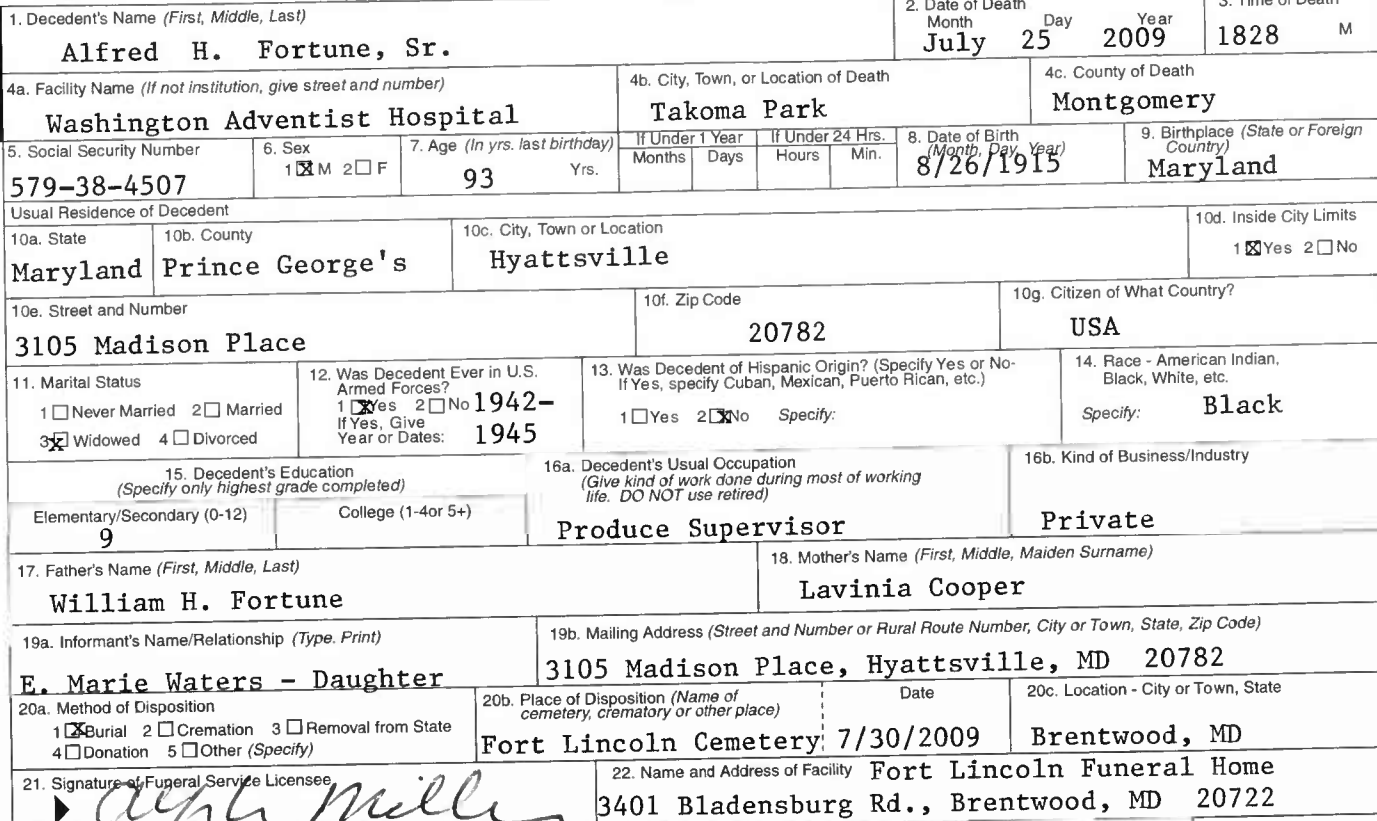 1. Decedent's Name (First, Middle, Last)
Alfred H. Fortune, Sr.
2. Date of Death
Month Day Year
July 25 2009
3. Time of Death
1828 M
4a. Facility Name (If not institution, give street and number)
Washington Adventist Hospital
4b. City, Town, or Location of Death
Takoma Park
4c. County of Death
Montgomery
5. Social Security Number
579-38-4507
6. Sex
1 ☒ M 2 ☐ F
7. Age (In yrs. last birthday)
93 Yrs.
If Under 1 Year
Months Days
If Under 24 Hrs.
Hours Min.
8. Date of Birth
(Month, Day, Year)
8/26/1915
9. Birthplace (State or Foreign
Country)
Maryland
Usual Residence of Decedent
10a. State
Maryland
10b. County
Prince George's
10c. City, Town or Location
Hyattsville
10d. Inside City Limits
1 ☒ Yes 2 ☐ No
10e. Street and Number
3105 Madison Place
10f. Zip Code
20782
10g. Citizen of What Country?
USA
11. Marital Status
1 ☐ Never Married 2 ☐ Married
3 ☒ Widowed 4 ☐ Divorced
12. Was Decedent Ever in U.S.
Armed Forces?
1 ☒ Yes 2 ☐ No 1942-
If Yes, Give
Year or Dates: 1945
13. Was Decedent of Hispanic Origin? (Specify Yes or No-
If Yes, specify Cuban, Mexican, Puerto Rican, etc.)
1 ☐ Yes 2 ☒ No Specify:
14. Race - American Indian,
Black, White, etc.
Specify: Black
15. Decedent's Education
(Specify only highest grade completed)
Elementary/Secondary (0-12)
9
College (1-4or 5+)
16a. Decedent's Usual Occupation
(Give kind of work done during most of working
life. DO NOT use retired)
Produce Supervisor
16b. Kind of Business/Industry
Private
17. Father's Name (First, Middle, Last)
William H. Fortune
18. Mother's Name (First, Middle, Maiden Surname)
Lavinia Cooper
19a. Informant's Name/Relationship (Type. Print)
E. Marie Waters - Daughter
19b. Mailing Address (Street and Number or Rural Route Number, City or Town, State, Zip Code)
3105 Madison Place, Hyattsville, MD 20782
20a. Method of Disposition
1 ☒ Burial 2 ☐ Cremation 3 ☐ Removal from State
4 ☐ Donation 5 ☐ Other (Specify)
20b. Place of Disposition (Name of
cemetery, crematory or other place)
Fort Lincoln Cemetery
Date
7/30/2009
20c. Location - City or Town, State
Brentwood, MD
21. Signature of Funeral Service Licensee
22. Name and Address of Facility Fort Lincoln Funeral Home
3401 Bladensburg Rd., Brentwood, MD 20722